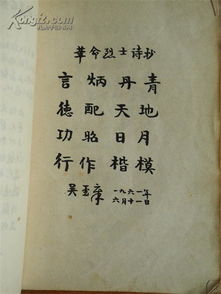 革命烈士诗抄
言炳丹青
德配天地
功昭日月
行作楷模
吴玉章 一九六一年
六月十一日